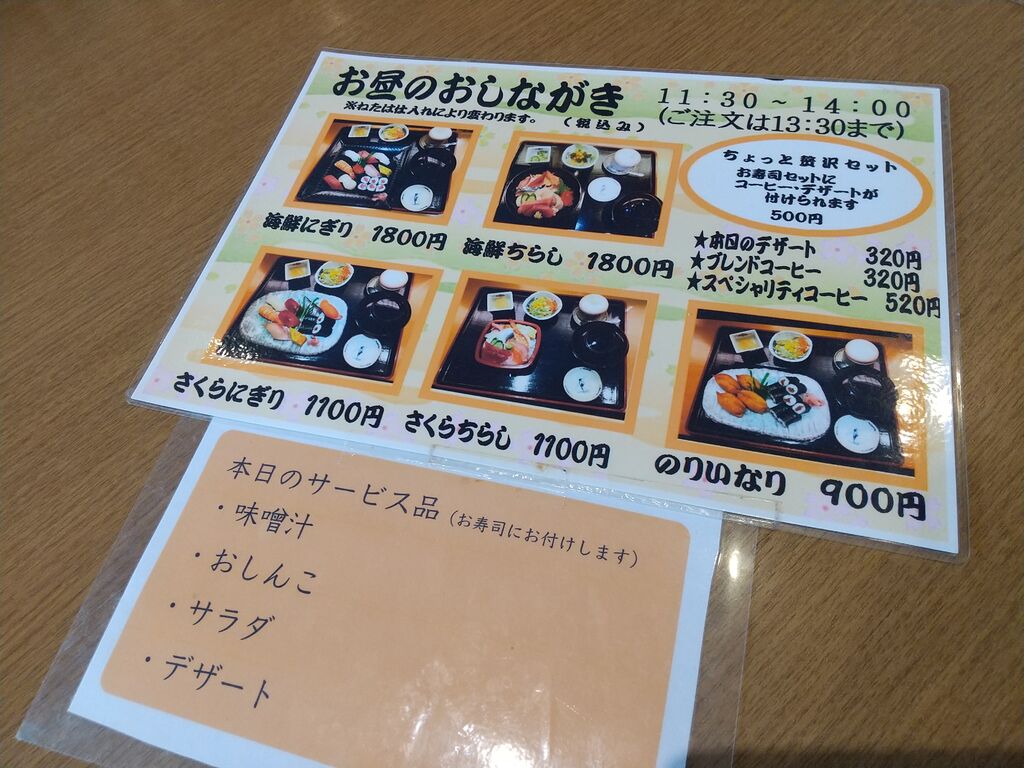 お昼のおしながき
11:30～14:00
※ねたは仕入れにより変わります。 (税込み)
(ご注文は13:30まで)
ちょっと贅沢セット
お寿司セットに
コーヒー・デザートが
付けられます
500円
海鮮にぎり 1800円
海鮮ちらし 1800円
★本日のデザート 320円
★ブレンドコーヒー 320円
★スペシャリティコーヒー 520円
さくらにぎり 1100円
さくらちらし 1100円
のりいなり 900円
本日のサービス品 (お寿司にお付けします)
・味噌汁
・おしんこ
・サラダ
・デザート